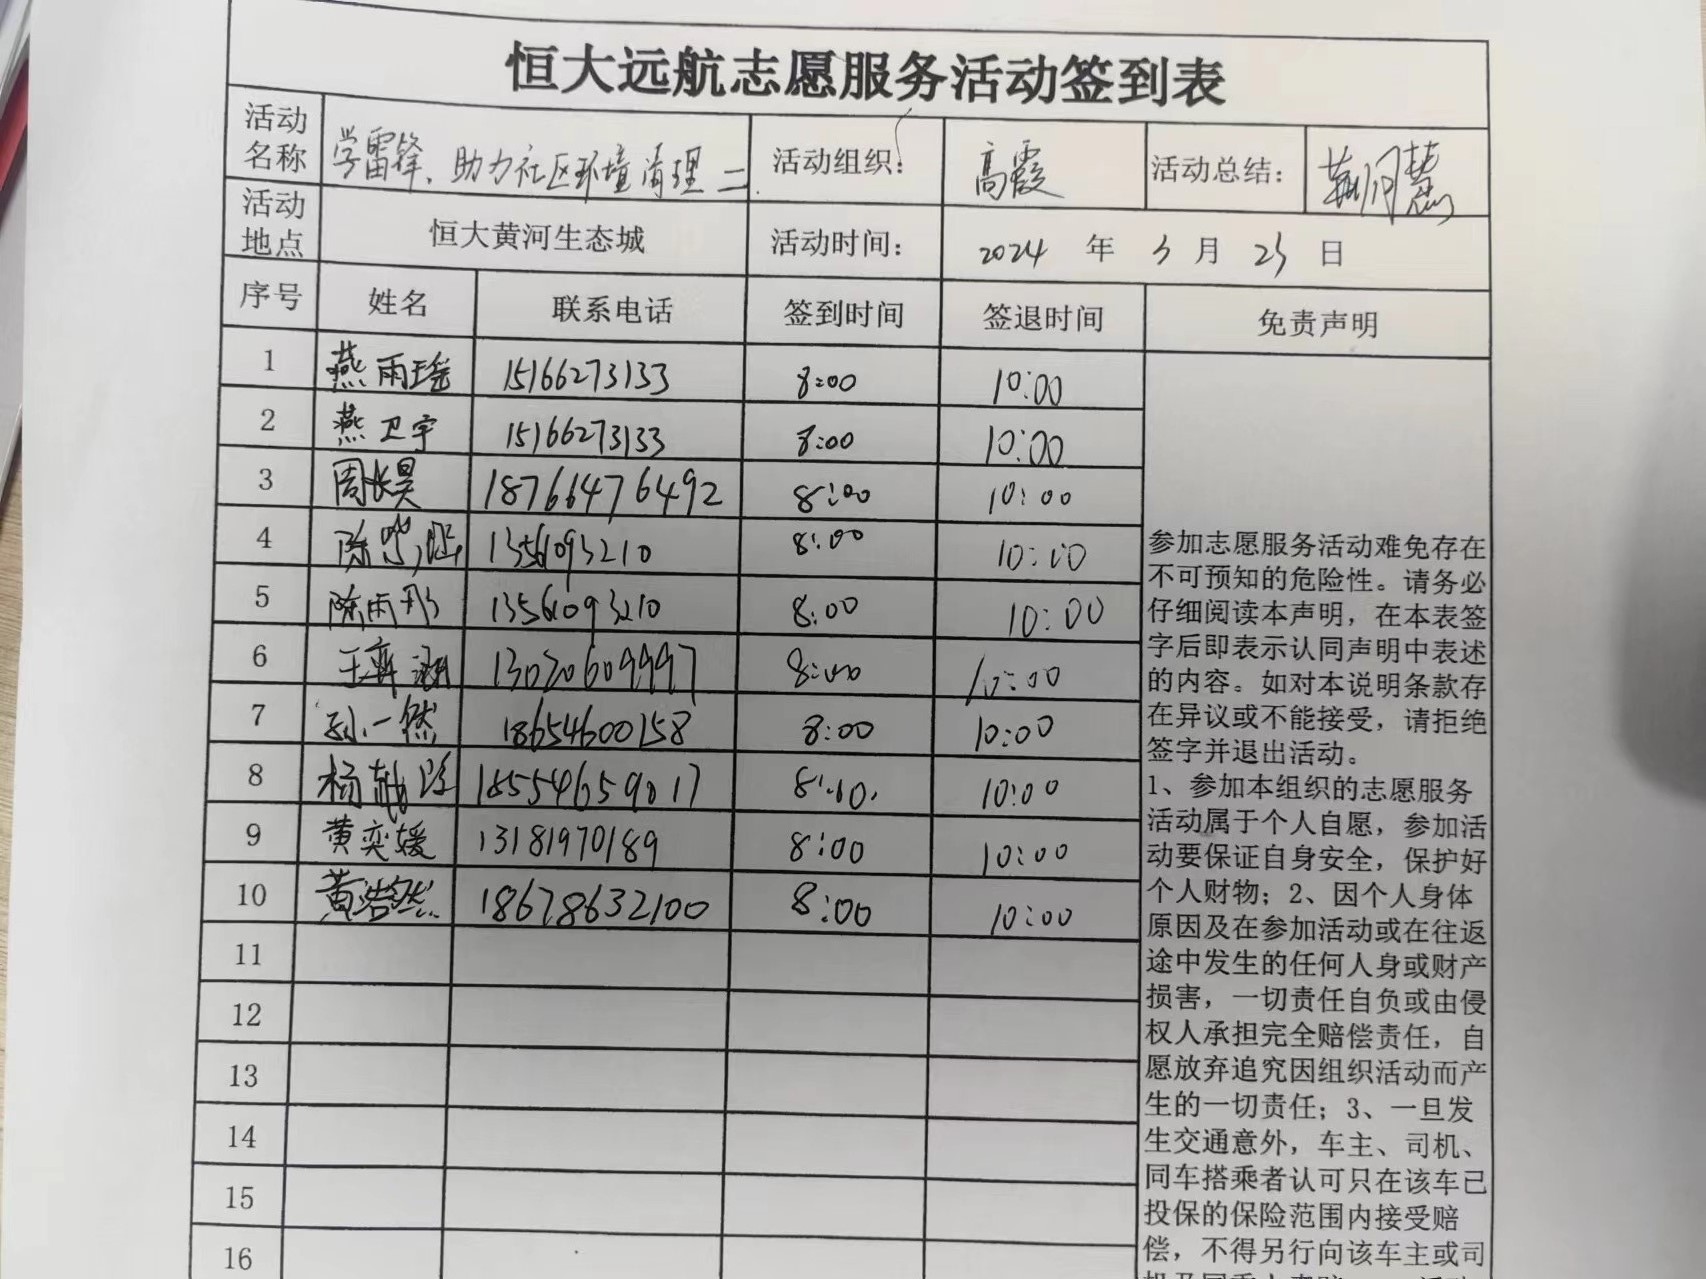 恒大远航志愿服务活动签到表
活动名称 学雷锋、助力社区环境清理二. 活动组织： 高霞 活动总结：
活动地点 恒大黄河生态城 活动时间： 2024 年 3 月 23 日
序号 姓名 联系电话 签到时间 签退时间 免责声明
1 燕雨瑶 15166273133 8:00 10:00
2 燕卫宇 15166273133 8:00 10:00
3 周长昊 18766476492 8:00 10:00
4 陈 1356093210 8:00 10:00
5 陈雨彤 13561093210 8:00 10:00
6 王奔涵 13020609997 8:00 10:00
7 孙一然 18654600158 8:00 10:00
8 杨 18554659017 8:10. 10:00
9 黄奕媛 13181970189 8:00 10:00
10 黄浩然 18678632100 8:00 10:00
11
12
13
14
15
16
参加志愿服务活动难免存在
不可预知的危险性。请务必
仔细阅读本声明，在本表签
字后即表示认同声明中表述
的内容。如对本说明条款存
在异议或不能接受，请拒绝
签字并退出活动。
1、参加本组织的志愿服务
活动属于个人自愿，参加活
动要保证自身安全，保护好
个人财物；2、因个人身体
原因及在参加活动或在往返
途中发生的任何人身或财产
损害，一切责任自负或由侵
权人承担完全赔偿责任，自
愿放弃追究因组织活动而产
生的一切责任；3、一旦发
生交通意外，车主、司机、
同车搭乘者认可只在该车已
投保的保险范围内接受赔
偿，不得另行向该车主或司